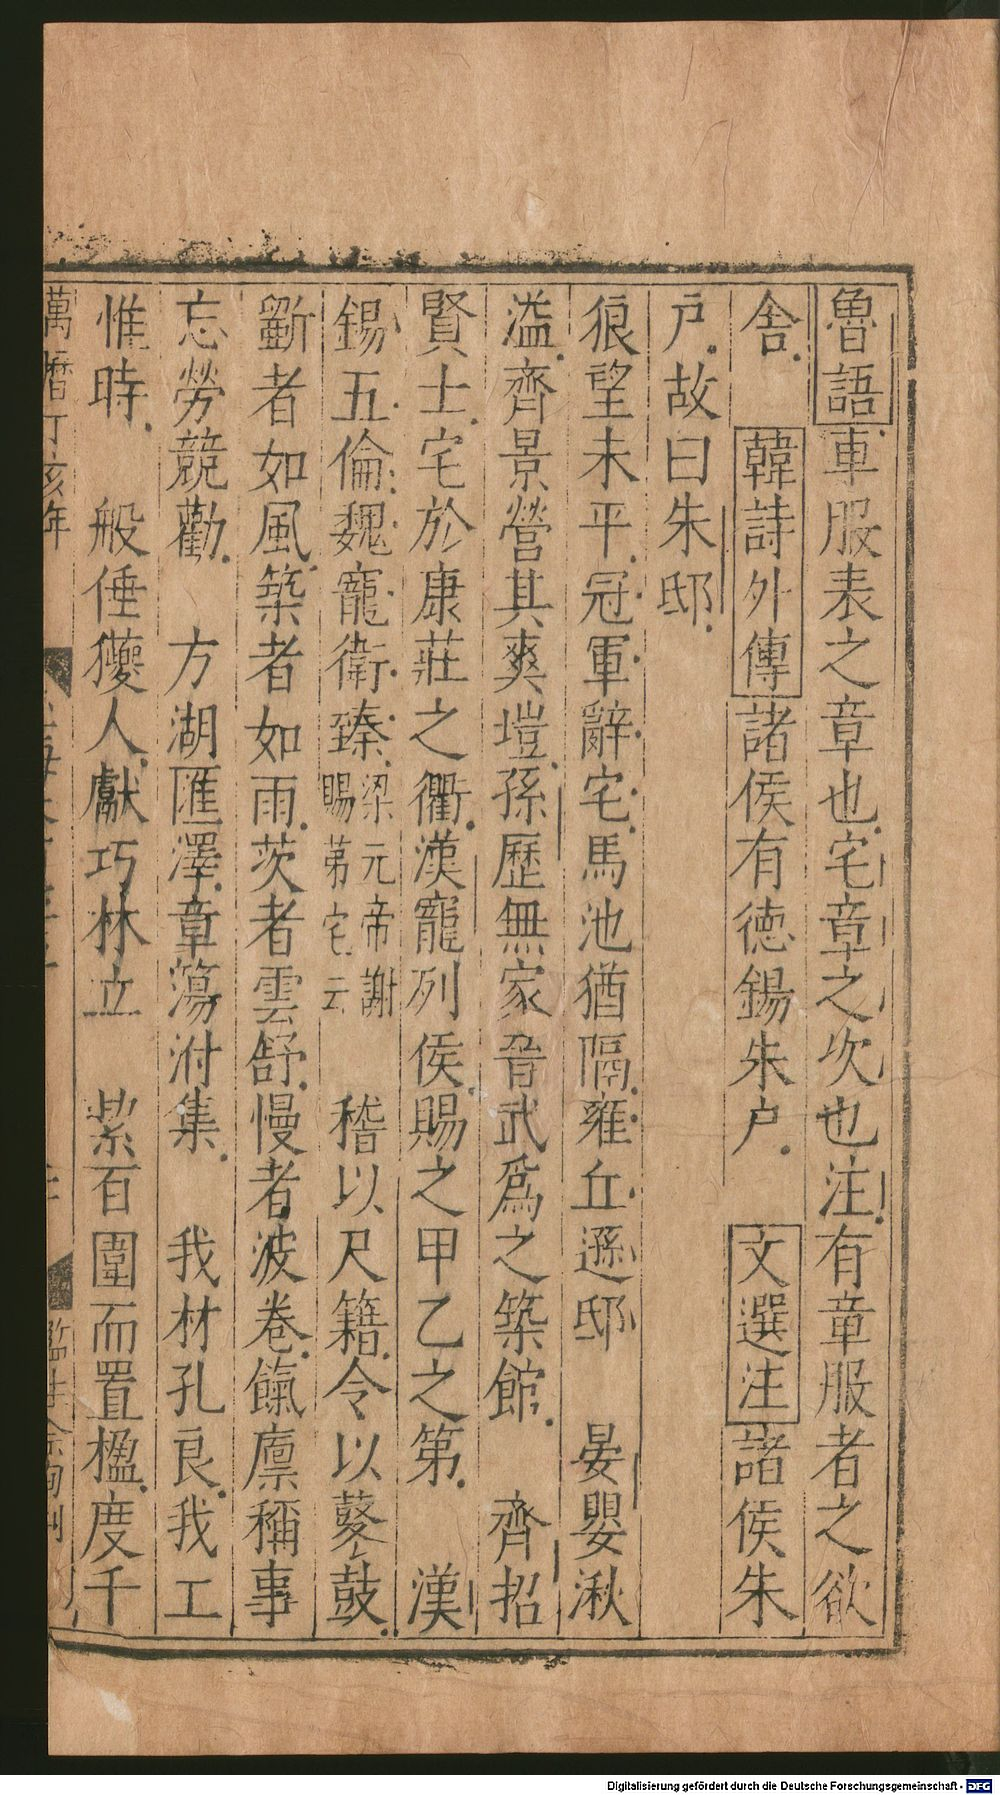 魯語車服表之章也宅章之次也注有章服者之欲
舍　韓詩外傳諸侯有德錫朱户　文選注諸侯朱
户故曰朱邸
狼望未平冠軍辭宅馬池猶隔雍丘遜邸　晏嬰湫
溢齊景營其爽塏孫歷無家晉武爲之築館　齊招
賢士宅於康莊之衢漢寵列侯賜之甲乙之第　漢
錫五倫魏寵衛臻梁元帝謝賜第宅云　稽以尺籍令以鼛鼓
斸者如風築者如雨茨者雲舒慢者波卷餼廪稱事
忘勞競勸　方湖匯澤章蕩泭集　我材孔良我工
惟時　般倕獿人獻巧林立　絜百圍而置楹度千
萬曆丁亥年
Digitalisierung gefördert durch die Deutsche Forschungsgemeinschaft - DFG